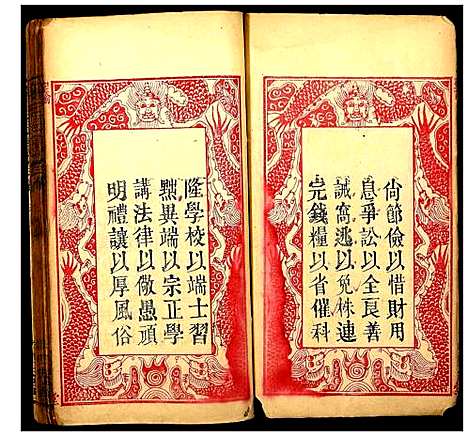 尙節儉以惜財用
息爭訟以全良善
誡窩逃以免株連
完錢糧以省催科
隆學校以端士習
黜異端以崇正學
講法律以儆愚頑
明禮讓以厚風俗